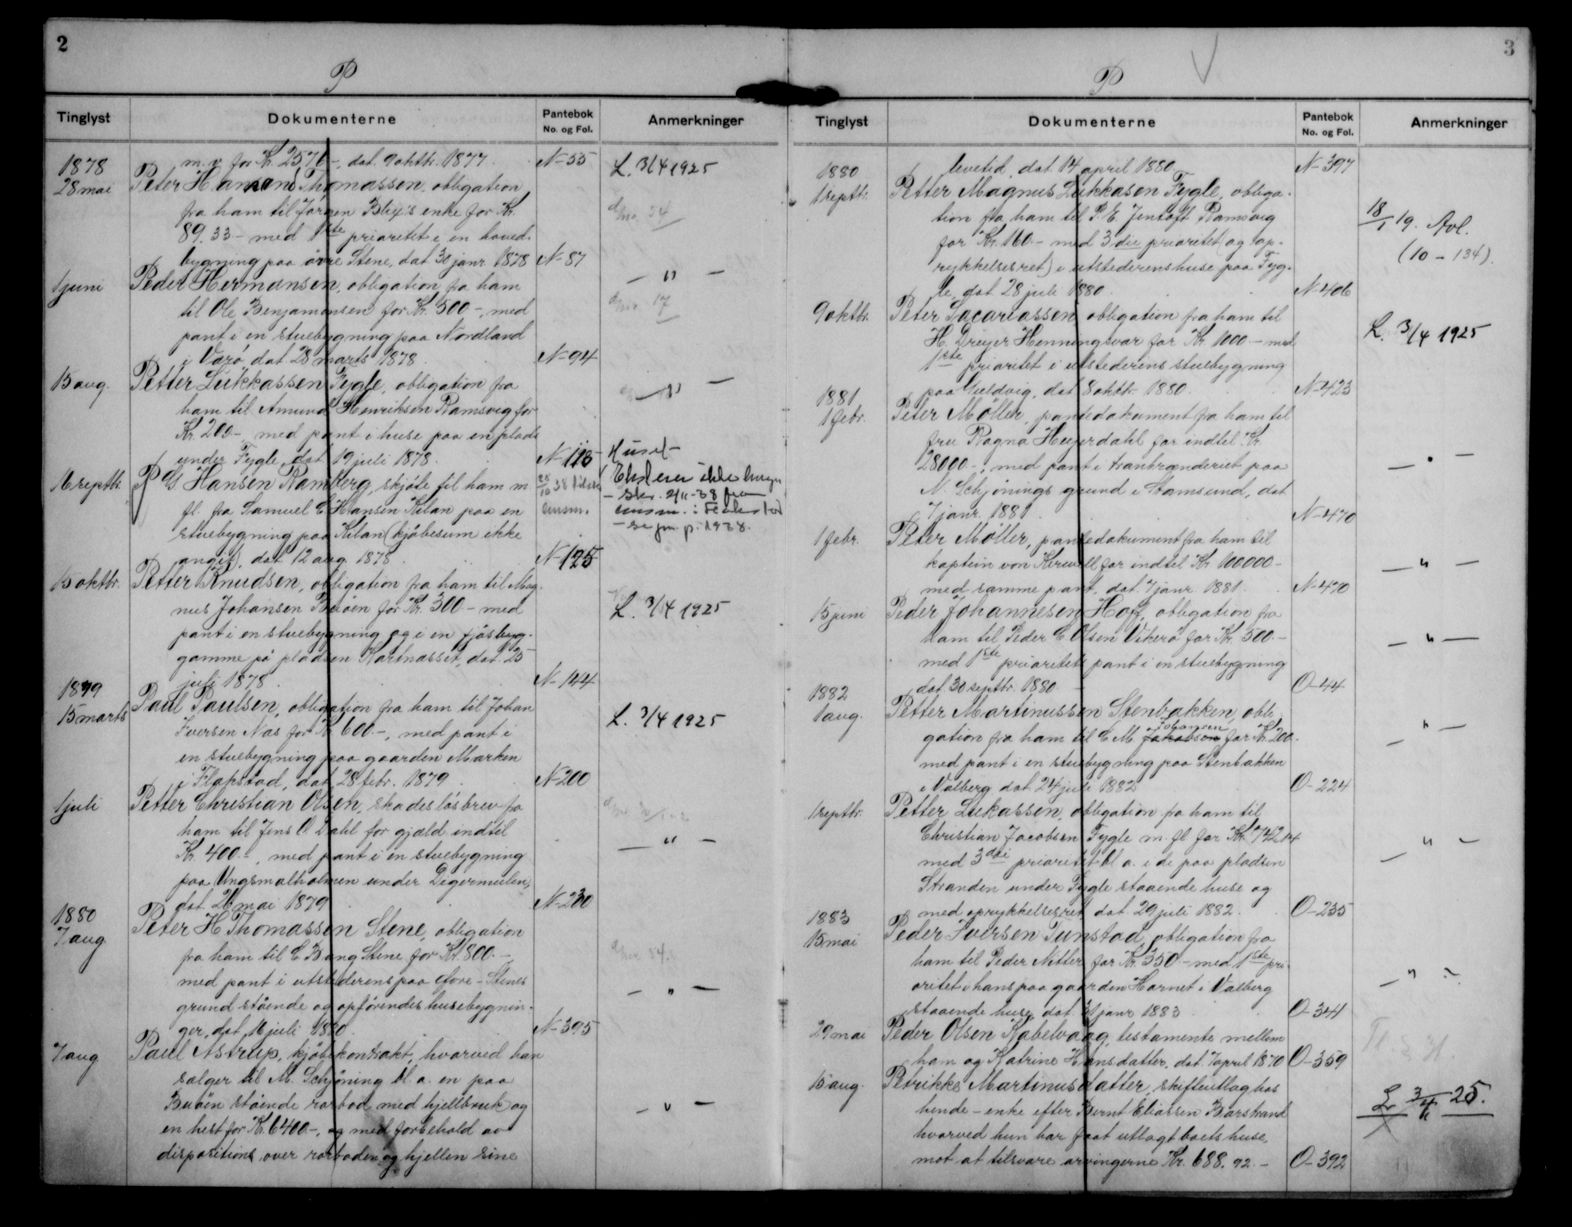 2
P
Tinglyst Dokumenterne Pantebok No. og Fol. Anmerkninger
1878 m. v. for Kr. 2576-, dat. 9 oktbr. 1877. N-55 L. 3/4 1925
28 mai Peter Hansen Thomassen, obligation
fra ham til Jörgen Blix's enke for Kr.
89.33- med 1ste prioritet i en hoved-
bygning paa övre Stene, dat 30 janr 1878 N-87
1 juni Peder Hermansen, obligation fra ham — " —
til Ole Benjamonsen for Kr. 500-, med
pant i en stuebygning paa Nordland
i Värö, dat 28 marts 1878. N-94
15 aug. Petter Lukkassen Fygle, obligation fra — " —
ham til Amund Henriksen Ramsvig for
Kr 200-, med pant i huse paa en plads
under Fygle, dat 19 juli 1878. N-115 Huset
16 septbr. P G Hansen Ramberg, skjöte til ham m Eksterer ikke
fl. fra Samuel C Hansen Kilan paa en
stuebygning paa Kilan (kjöbesum ikke
angit), dat 12 aug 1878 N-125
15 oktbr. Petter Knudsen, obligation fra ham til Mag-
nus Johansen Buöen for Kr. 300- med L. 3/4 1925
pant i en stuebygning og i en fjösbyg-
gamme på pladsen Kartnasset, dat 25
1879 juli 1878 N-144
15 marts Paul Paulsen, obligation fra ham til Johan
Iversen Näs for Kr 600-, med pant i L. 3/4 1925
en stuebygning paa gaarden Marken
i Flapstad, dat 28 febr. 1879 N-200
1 juli Petter Christian Olsen, skadeslösbrev fra
ham til Jens O Dahl for gjæld indtil
Kr. 400-, med pant i en stuebygning — " —
paa Ungsmalholmen under Digermulen,
dat 26 mai 1879 N-230
1880
7 aug Peter H Thomassen Stene, obligation
fra ham til C Bang Stene for Kr. 800-
med pant i utstederens paa övre-Stenes — " —
grund stående og opförendes husebygnin-
ger, dat 16 juli 1880. N-395
7 aug Paul Astrup, kjöbekontrakt, hvorved han
sælger til M. Schjöning bl. a. en paa
Buöen stående rorbod med hjellbruk og — " —
en hest for Kr. 6400-, og med forbehold av
dispositions over rorboden og hjellen sine
3
P V
Tinglyst Dokumenterne Pantebok No. og Fol. Anmerkninger
1880 levetid, dat 14 april 1880 N-397
1 septbr. Petter Magnus Lukkasen Fygle, obliga-
tion fra ham til P. E. Jentoft Ramsvig 18/1 19. Avl.
for Kr. 160- med 3die prioritet og op- (10-134).
rykkelsesret) i utstederens huse paa Fyg-
le, dat 28 juli 1880. N-406
9 oktbr. Peter Sacariassen, obligation fra ham til
H. Dreyer Henningsvær for Kr. 1000- med L. 3/4 1925
1ste prioritet i utstederens stuebygning
1881 paa Guldvig, dat 8 oktbr. 1880. N-423
1 febr. Peter Möller, pantedokument fra ham til
fru Ragna Heyerdahl for indtil Kr
128000-, med pant i tranbrænderiet paa — " —
N. Schjönings grund i Stamsund, dat
7 janr. 1881 N-470
1 febr. Peter Möller, pantedokument fra ham til
kaptein von Kerwell for indtil Kr 100000- — " —
med samme pant, dat. 7 janr 1881. N-470
15 juni Peder Johannesen Hoff, obligation fra
ham til Peder C Olsen Vikerö for Kr. 500- — " —
med 1ste prioritets pant i en stuebygning
1882 dat 30 septbr 1880 O-44
1 aug. Petter Martinussen Stenbakken, obli-
gation fra ham til C M Jakobsen Johansen for Kr. 200- — " —
med pant i en stuebygning paa Stenbakken
i Valberg dat 24 juli 1882 O-224
1 septbr. Petter Lukassen, obligation fra ham til
Christian Jacobsen Fygle m. fl. for Kr. 742.14 — " —
med 3die prioritet bl. a. i de paa pladsen
Stranden under Fygle staaende huse og
1883 med oprykkelsesret, dat 29 juli 1882. O-235
15 mai Peder Iversen Tunstad, obligation fra
ham til Peder Nitter for Kr 350- med 1ste pri-
oritet i hans paa gaarden Hornet i Valberg — " —
staaende huse, dat 31 janr 1883 O-344
29 mai Peder Olsen Kabelvaag, testamente mellem
ham og Katrine Hansdatter, dat. 7 april 1870 O-359
15 aug. Petrikke Martinusdatter, skifteutlag hos
hende - enke efter Bernt Eliassen Barstrand L. 3/4 25.
hvorved hun har faat utlagt boets huse,
mot at tilsvare arvingerne Kr. 688.92.- O-392